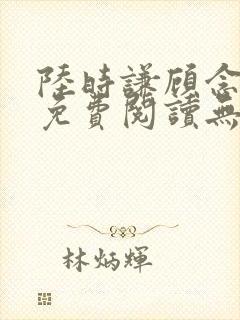 陸時謙顧念
免費閱讀無
林炳輝